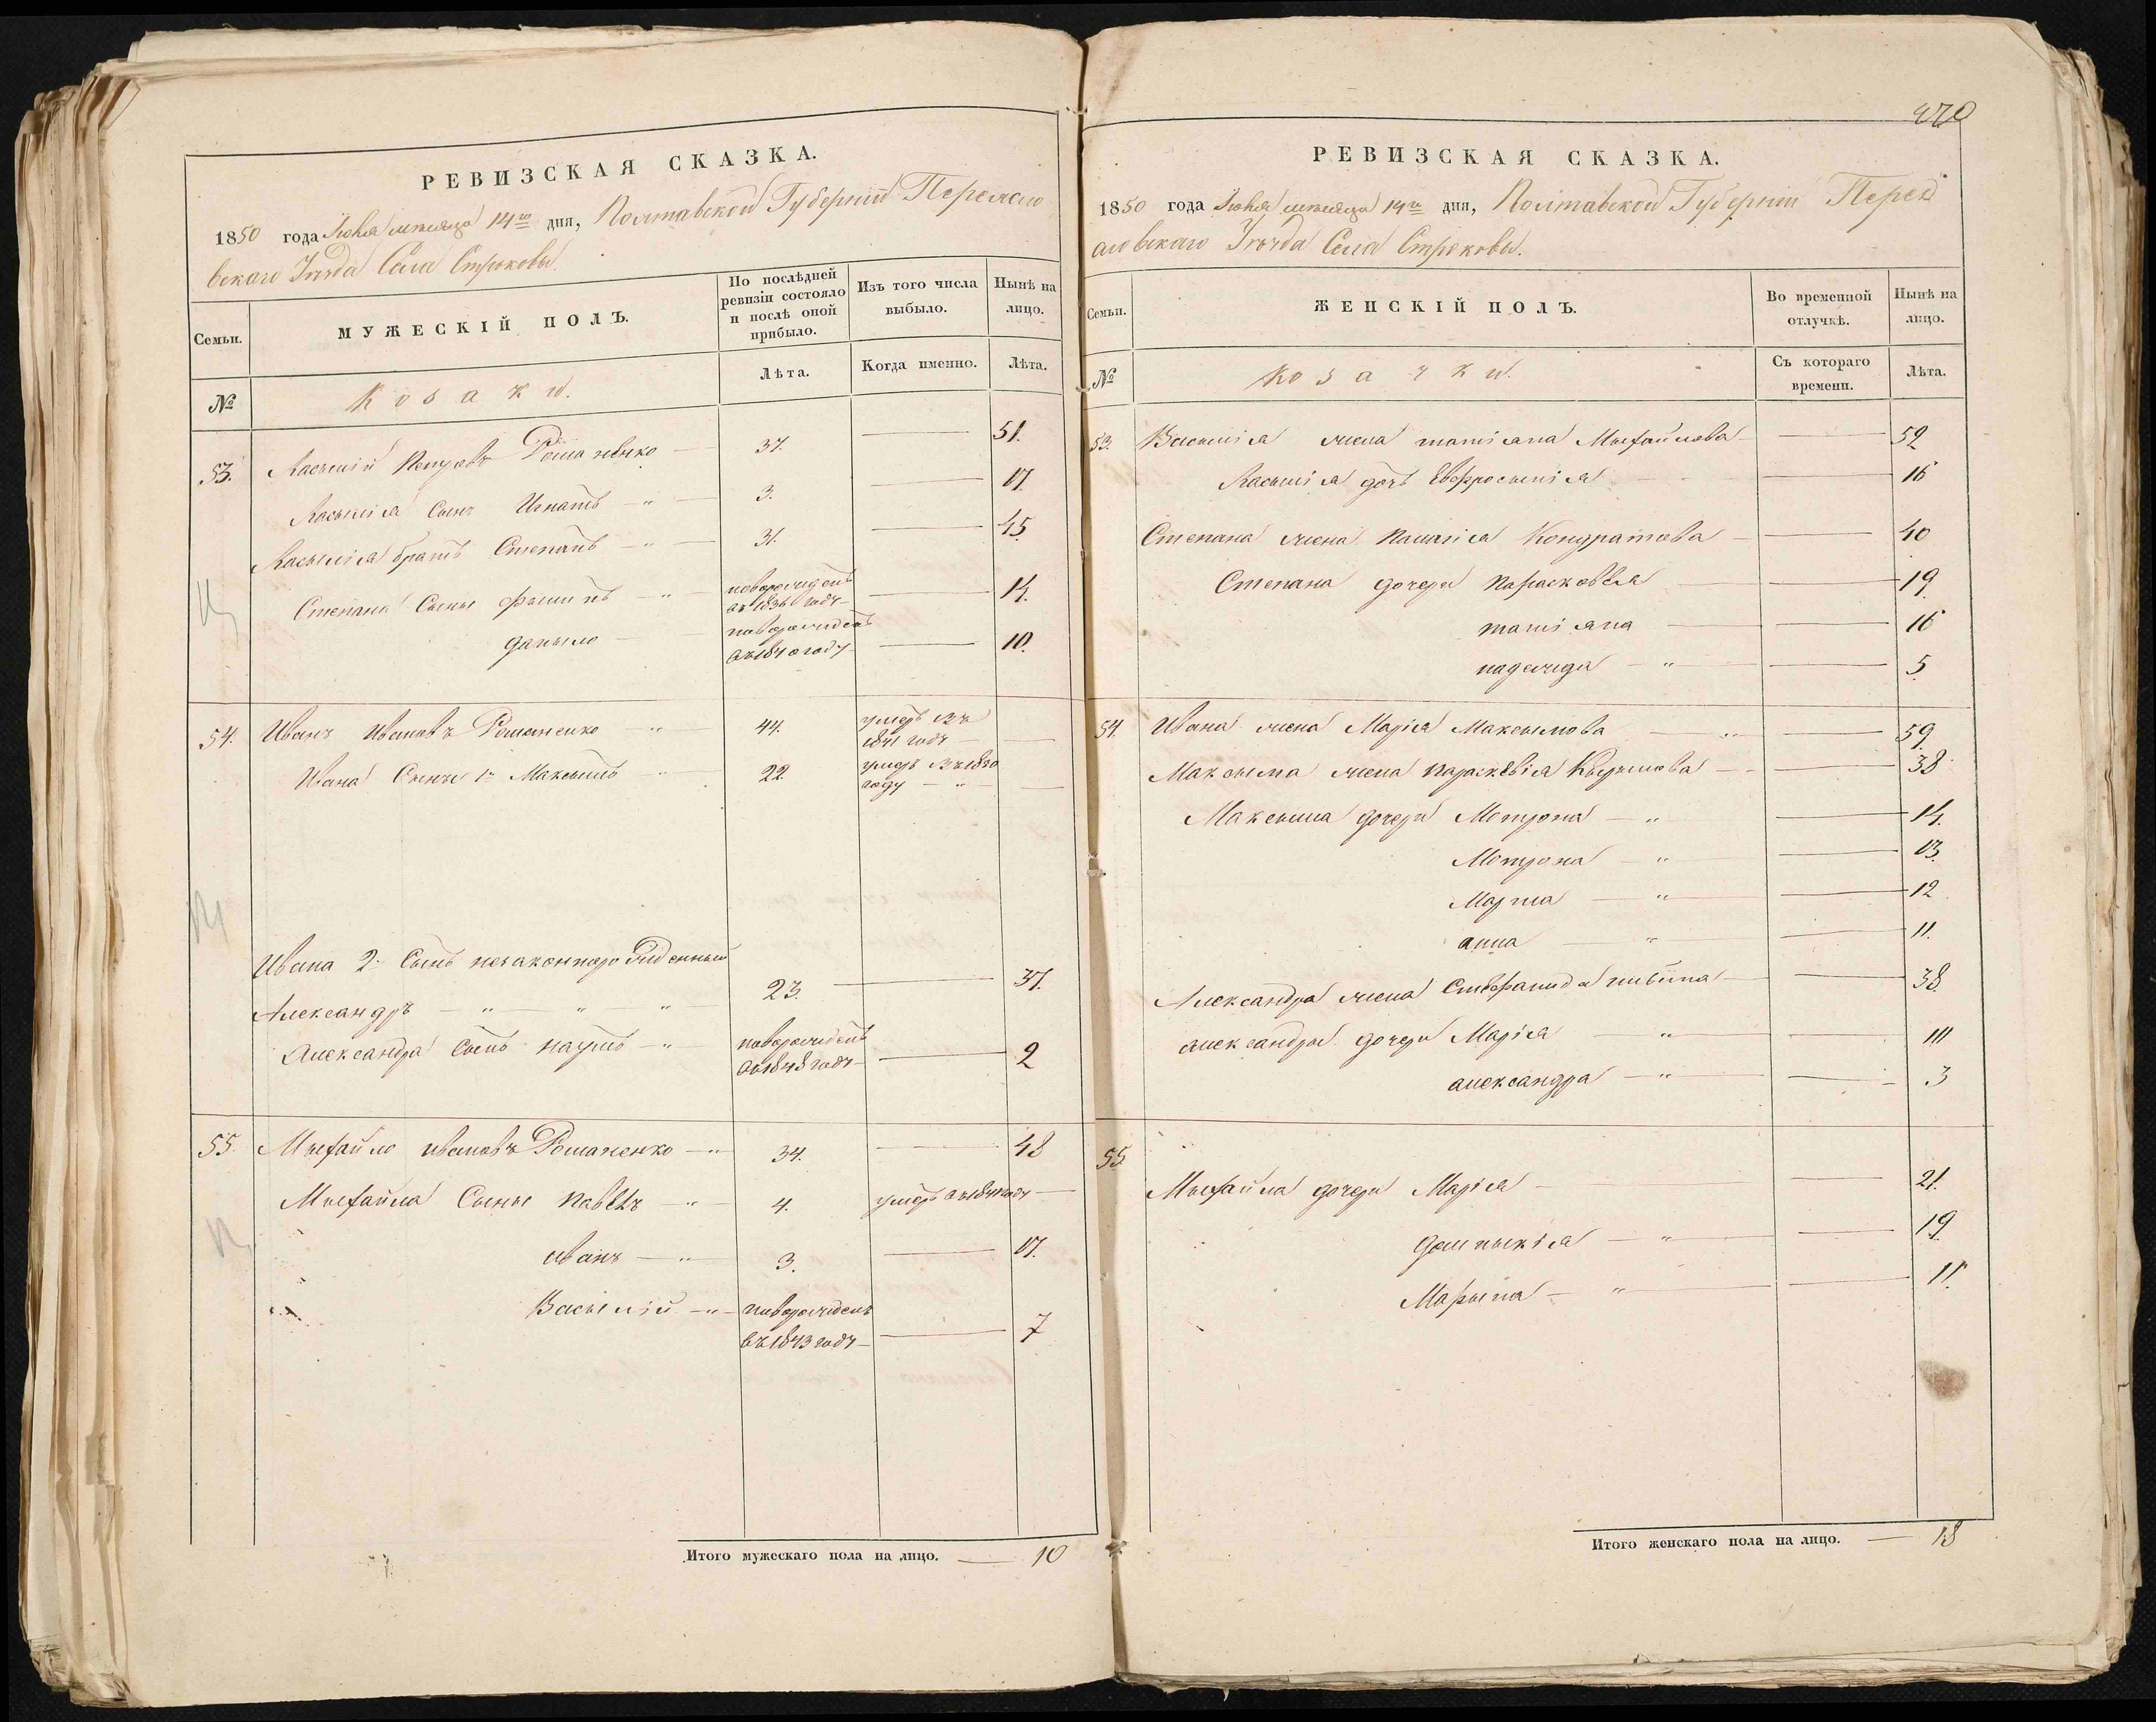 РЕВИЗСКАЯ СКАЗКА.
1850 года Июня месяца 14го дня, Полтавской Губернiи Переясло
вскаго Уѣзда Села Строковы.
Семьи.
МУЖЕСКIЙ ПОЛЪ.
По послѣдней
ревизiи состояло
и послѣ оной
прибыло.
Изъ того числа
выбыло.
Нынѣ на
лицо.
№
Козаки.
Лѣта.
Когда именно.
Лѣта.
53. Петровъ Романенко — 37. — 51.
сынъ Игнатъ — 3. — 17.
братъ Степанъ — 31. — 45.
Степана Сыны новорожденъ
въ 1836 году — 14.
данило — новорожденъ
въ 1840 году — 10.
54. Иванъ Ивановъ Романенко — 44. умеръ въ
1841 году —
Ивана Сынъ 1й Максымъ 22. умеръ въ 1850
году —
Ивана 2й Сынъ незаконнорожденный
Александръ — 23. — 37.
Александра Сынъ наумъ — новорожденъ
въ 1848 году — 2
55. Мыхайло ивановъ Романенко — 34. — 48
Мыхайла Сыны павелъ — 4. умеръ въ 1841 году —
иванъ — 3. — 17.
Васылiй — новорожденъ
въ 1843 году — 7
Итого мужескаго пола на лицо. — 10
270
РЕВИЗСКАЯ СКАЗКА.
1850 года Июня месяца 14го дня, Полтавской Губернiи Перея
словскаго Уѣзда Села Строковы.
Семьи.
ЖЕНСКIЙ ПОЛЪ.
Во временной
отлучкѣ.
Нынѣ на
лицо.
№
Козачки.
Съ котораго
времени.
Лѣта.
53. жена татiана Мыхайлова — 52
дочь Евфросынiя — 16
Степана жена палагiя Кондратова — 40
Степана дочери парасковѣя — 19
татiана — 16
надежда — 5
54. Ивана жена Марiя Максымова — 59
Максыма жена параскевiя — 38
Максыма дочери Мотрона — 14.
Мотрона — 13
Марта — 12
анна — 11.
Александра жена Стефанида — 38.
александра дочери Марiя — 10
александра — 3
55. Мыхайла дочери Марiя — 21.
домникiя — 19
Марына — 11.
Итого женскаго пола на лицо. — 18